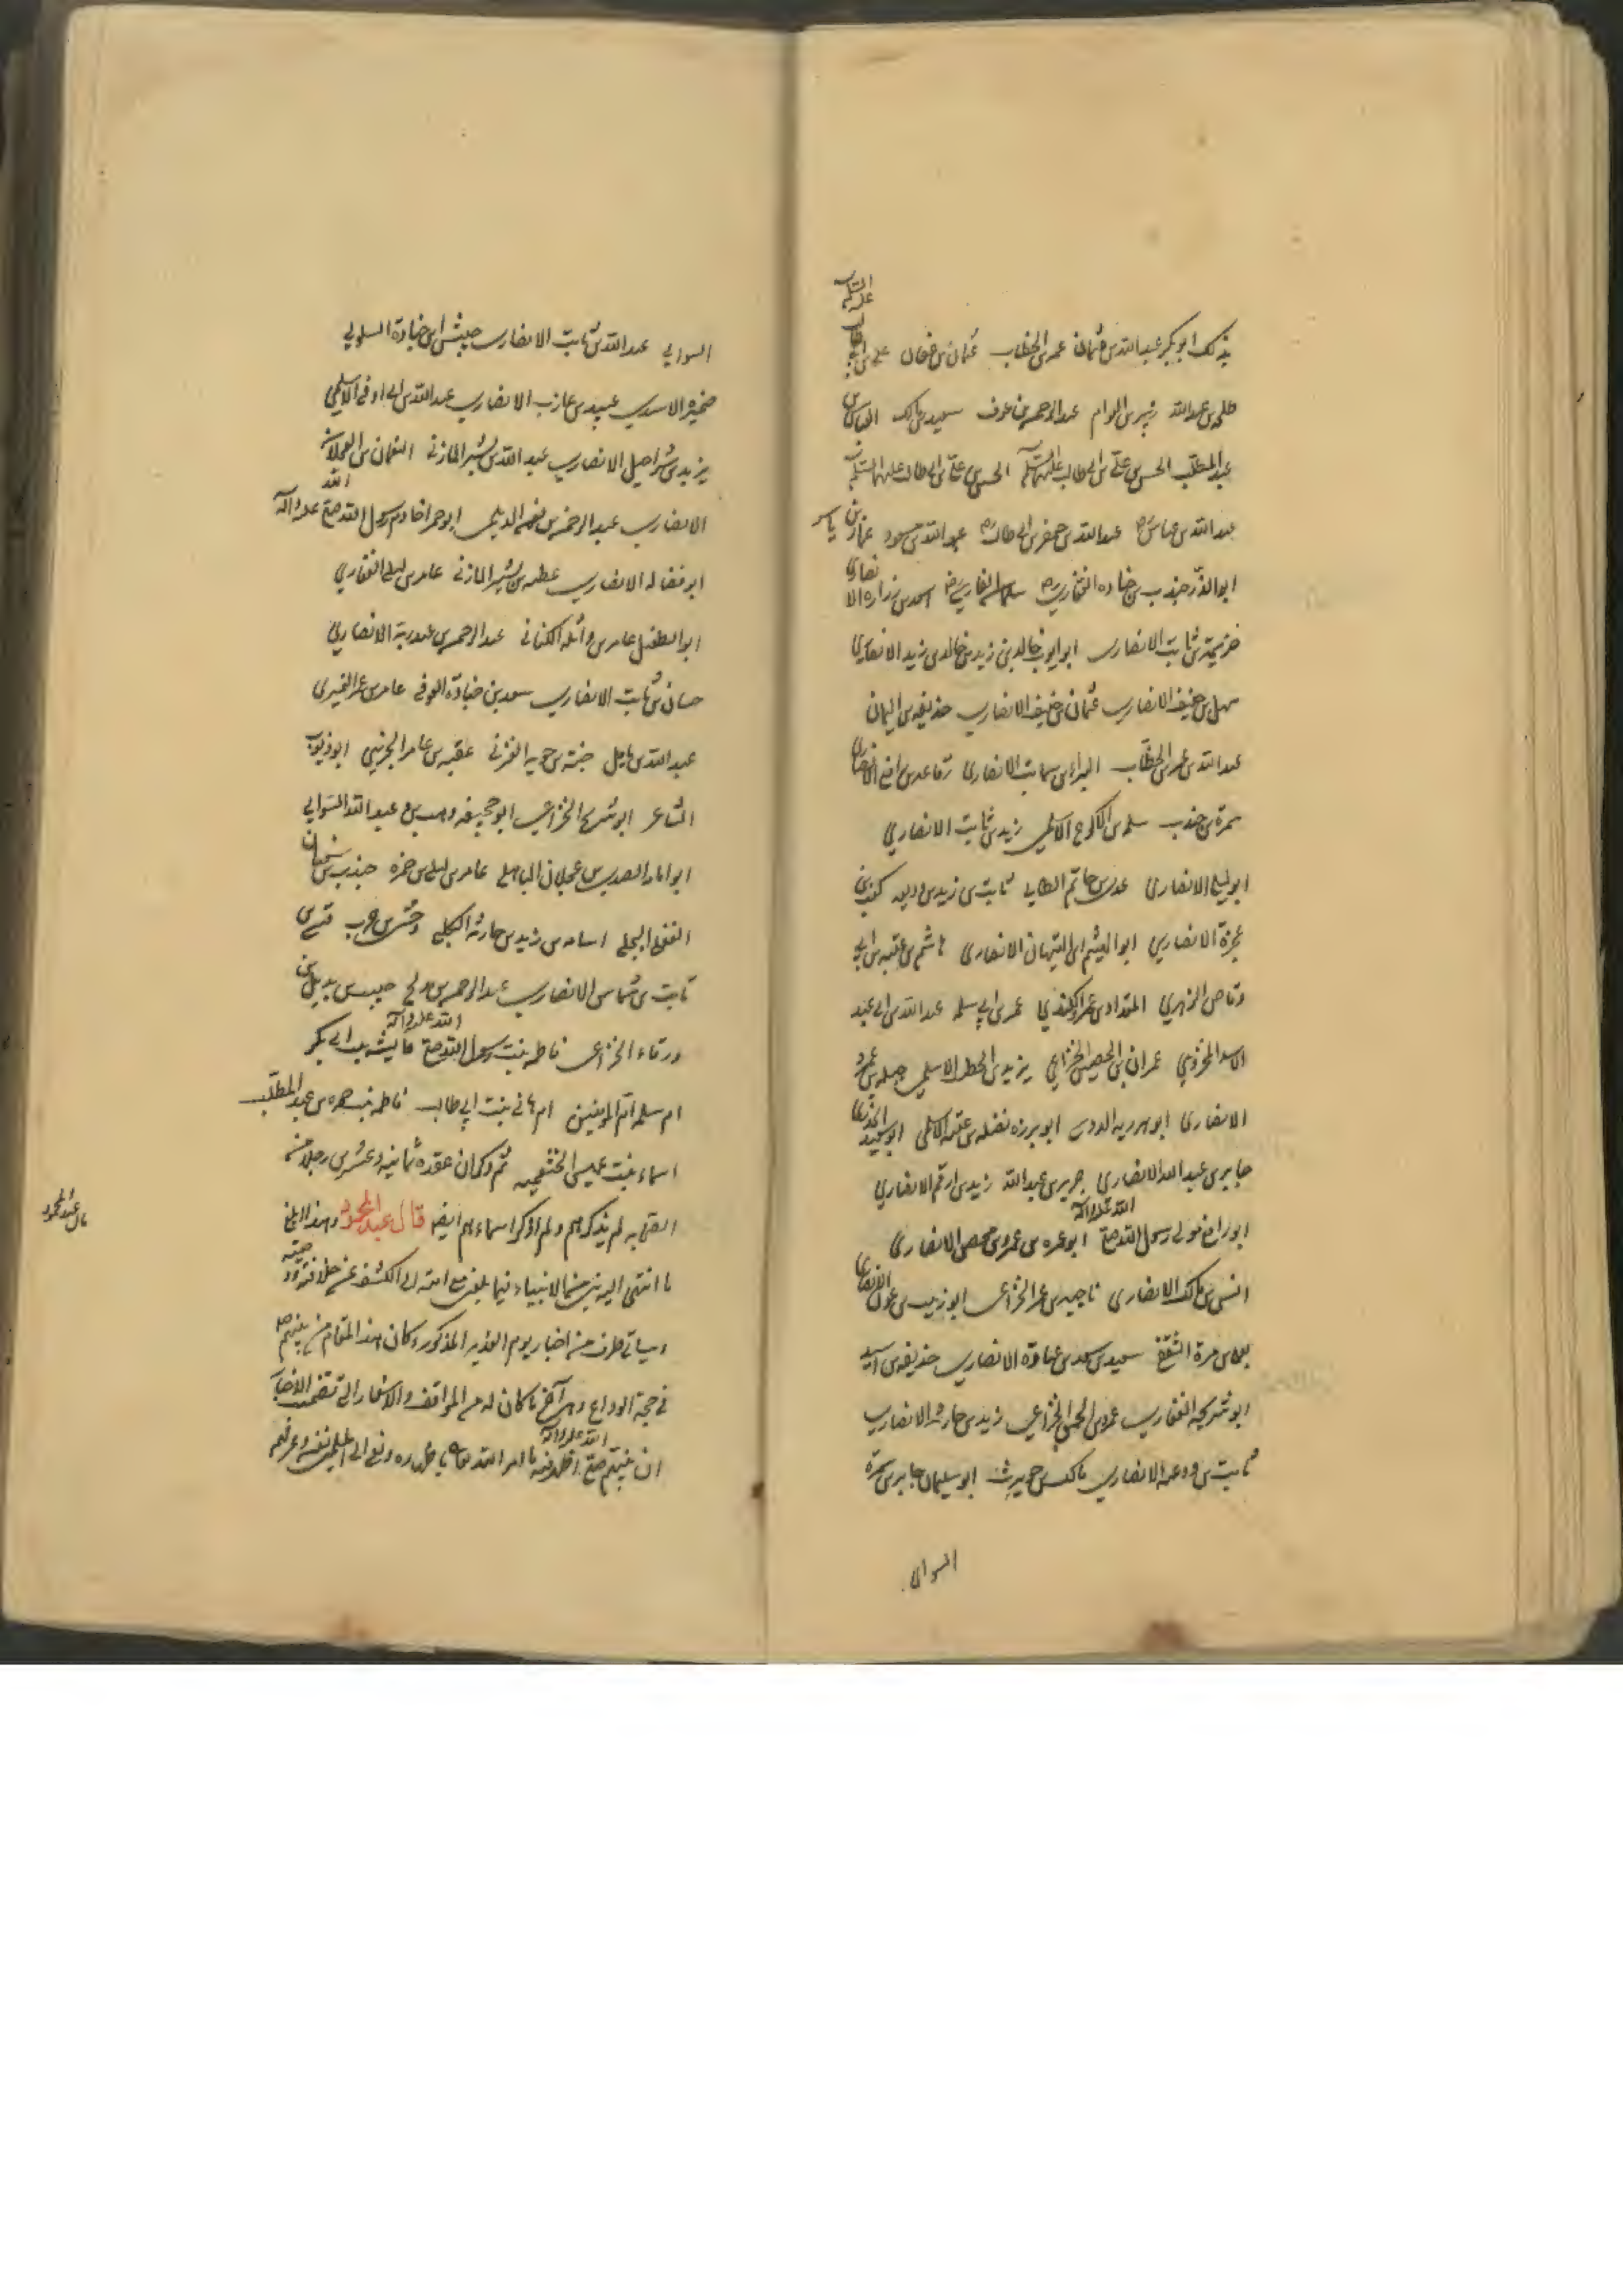 السلام
عليه
بذلك ابو بكر عبد الله بن عثمان عمر بن الخطاب عثمان بن عفان علي بن ابي طالب
طلحه بن عبد الله زبير بن العوام عبد الرحمن بن عوف سعيد بن مالك العباس بن
عبد المطلب الحسن بن علي بن ابي طالب عليهما السلام الحسين بن علي بن ابي طالب عليهما السلام
عبد الله بن عباس عبد الله بن جعفر بن ابي طالب عبد الله بن مسعود عمار بن ياسر
ابو الذر جندب بن جناده الغفاري سلمان الفارسي اسعد بن زراره الانصاري
خزيمة بن ثابت الانصاري ابو ايوب خالد بن زيد بن خالد بن زيد الانصاري
سهل بن حنيف الانصاري عثمان بن حنيف الانصاري حذيفه بن اليمان
عبد الله بن عمر بن الخطاب البراء بن الانصاري رفاعه بن رافع الانصاري
سمرة بن جندب سلمه بن الاكوع الاسلمي زيد بن ثابت الانصاري
ابو ليلي الانصاري عدي بن حاتم الطايي ثابت بن زيد بن وديعه كعب بن
عجزة الانصاري ابو الهيثم بن التيهان الانصاري هاشم بن عتبه بن ابي
وقاص الزهري المقداد بن عمرو الكندي عمر بن ابي سلمه عبد الله بن ابي عبد
الاسد المخزومي عمران بن الحصين الخزاعي يزيد بن الاسلمي جبله بن عمرو
الانصاري ابو هريره الدوسي ابو برزه نضله بن عتبه الاسلمي ابو سعيد الخدري
جابر بن عبد الله الانصاري جرير بن عبد الله زيد بن ارقم الانصاري
ابو رافع مولي رسول الله صلي الله عليه واله ابو عمره بن عمرو بن محصن الانصاري
انس بن مالك الانصاري ناجيه بن عمر الخزاعي ابو زينب بن عوف الانصاري
يعلي بن مرة الثقفي سعيد بن سعد بن عبادة الانصاري حذيفه بن اسيد
ابو شريحه الغفاري عمرو بن الحمق الخزاعي زيد بن حارثه الانصاري
ثابت بن وديعه الانصاري مالك بن حويرث ابو سليمان جابر بن سمرة
السوالي
السوالي عبد الله بن ثابت الانصاري حبيش بن جنادة السلولي
ضميره الاسدي عبيد بن عازب الانصاري عبد الله بن ابي اوفى الاسلمي
يزيد بن شراحيل الانصاري عبد الله بن بشير المازني النعمان بن العجلان
الانصاري عبد الرحمن بن نعيم الديلي ابو حمراء خادم رسول الله صلي الله عليه واله
ابو فضاله الانصاري عطيه بن بشير المازني عامر بن ليلي الغفاري
ابو الطفيل عامر بن واثله الكناني عبد الرحمن بن عبد ربه الانصاري
حسان بن ثابت الانصاري سعد بن جنادة العوفي عامر بن عمر النميري
عبد الله بن ياميل حبة بن جويه العرني عقبه بن عامر الجهني ابو ذويب
الشاعر ابو شريح الخزاعي ابو جحيفه وهب بن عبد الله السوالي
ابو امامه الصدي بن عجلان الباهلي عامر بن ليلي بن ضمره جندب بن سفيان
البجلي اسامه بن زيد بن حارثه الكلبي وحشي بن حرب قيس بن
ثابت بن شماس الانصاري عبد الرحمن بن مدلج حبيب بن بديل بن
ورقاء الخزاعي فاطمه بنت رسول الله صلي الله عليه واله عايشه بنت ابي بكر
ام سلمه ام المومنين ام هاني بنت ابي طالب فاطمه بنت حمزه بن عبد المطلب
اسماء بنت عميس الخثعميه ثم ذكر ابن عقده ثمانيه وعشرين رجلا من
الصحابه لم يذكرهم ولم اذكر اسماءهم ايضا قال عبد المحمود وهذا ابلغ
قال عبد المحمود
ما انتهي اليه من الانبياء فيما بلغني مع امته الي الكشف عن خلافته ووصيته
وسياتي طرف من اخبار يوم الغدير المذكور وكان هذا المقام من نبيهم ص
في حجة الوداع ما كان له من المواقف والاسفار التي تضمنت الاخبار
ان نبيهم صلي الله عليه واله اظهر فيه ما امر الله تعالي باظهاره